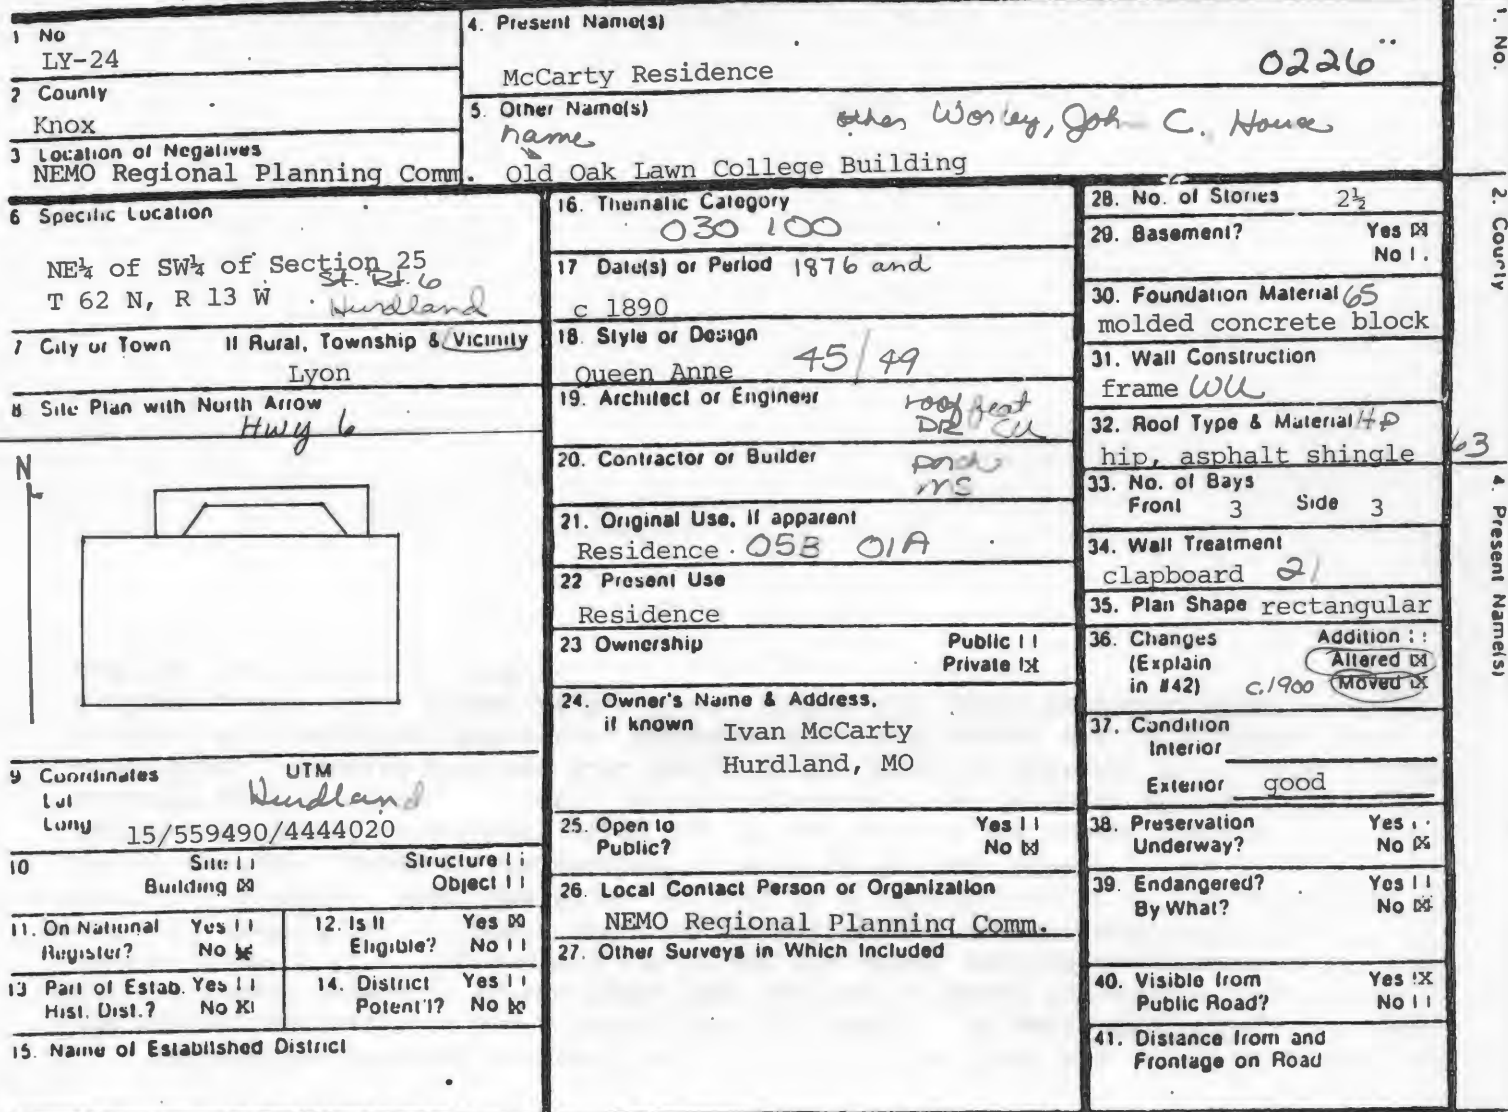 1 No
LY-24
2 County
Knox
3 Location of Negatives
NEMO Regional Planning Comm.
4. Present Name(s)
McCarty Residence
0226
5. Other Name(s)
name
other Worley, John C. House
Old Oak Lawn College Building
6 Specific Location
NE¼ of SW¼ of Section 25
St. Rt. 6
T 62 N, R 13 W
Hurdland
7 City or Town If Rural, Township & Vicinity
Lyon
8 Site Plan with North Arrow
Hwy 6
N
9 Coordinates UTM
Lat
Hurdland
Long
15/559490/4444020
10 Site Structure
Building Object
11. On National Register? Yes No
12. Is It Eligible? Yes No
13 Part of Estab. Hist. Dist.? Yes No
14. District Potent'l? Yes No
15. Name of Established District
16. Thematic Category
030 100
17 Date(s) or Period 1876 and
c 1890
18. Style or Design
Queen Anne 45/49
19. Architect or Engineer
roof feat
DR CU
20. Contractor or Builder
porch
MS
21. Original Use, if apparent
Residence 05B 01A
22 Present Use
Residence
23 Ownership Public
Private
24. Owner's Name & Address,
if known Ivan McCarty
Hurdland, MO
25. Open to Yes
Public? No
26. Local Contact Person or Organization
NEMO Regional Planning Comm.
27. Other Surveys in Which Included
28. No. of Stories 2½
29. Basement? Yes
No
30. Foundation Material 65
molded concrete block
31. Wall Construction
frame WU
32. Roof Type & Material HP
hip, asphalt shingle 63
33. No. of Bays
Front 3 Side 3
34. Wall Treatment
clapboard 21
35. Plan Shape rectangular
36. Changes Addition
(Explain Altered
in #42) c.1900 Moved
37. Condition
Interior
Exterior good
38. Preservation Yes
Underway? No
39. Endangered? Yes
By What? No
40. Visible from Yes
Public Road? No
41. Distance from and
Frontage on Road
1. No.
2. County
4. Present Name(s)